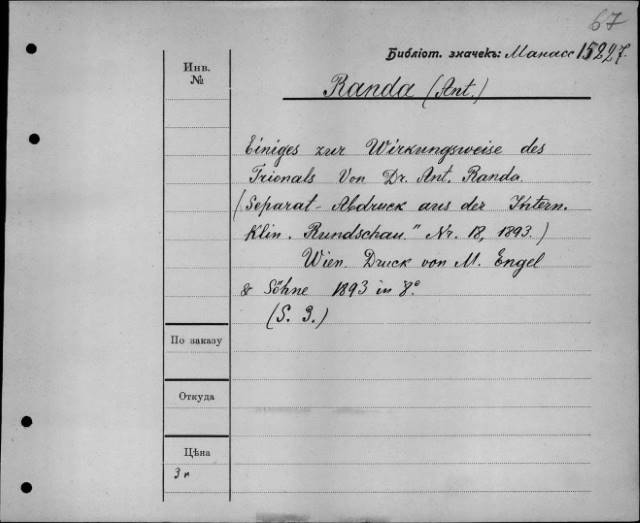 67
Библіот. значекъ: Манасс 15227.
Инв.
№
Randa (Ant.)
Einiges zur Wirkungsweise des
Trionals Von Dr. Ant. Randa.
(Separat-Abdruck aus der Intern.
Klin. Rundschau." Nr. 18, 1893.)
Wien. Druck von M. Engel
& Söhne 1893 in 8°
(S. 3.)
По заказу
Откуда
Цѣна
3 к